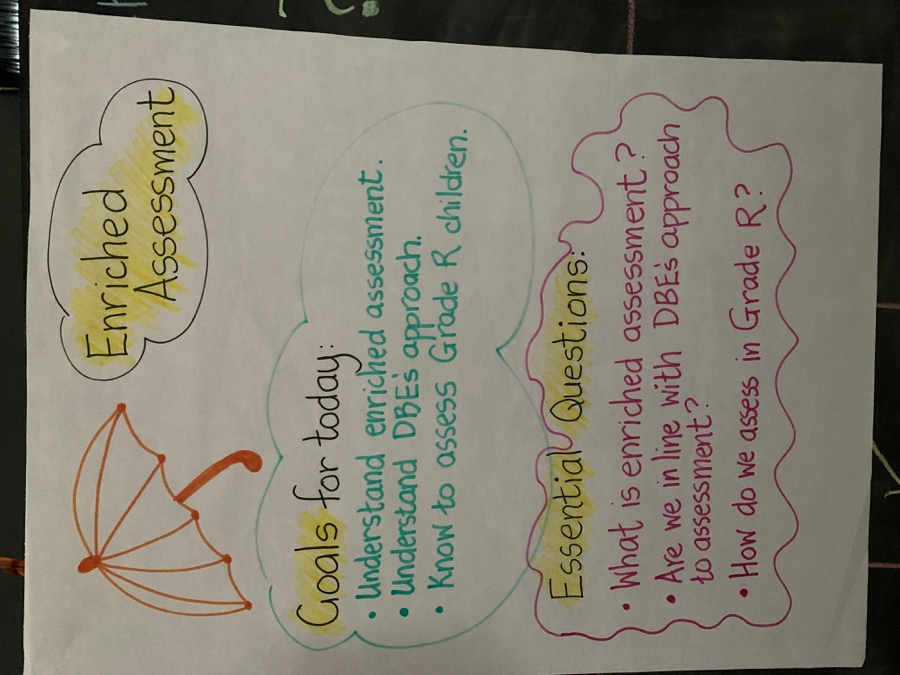 Enriched
Assessment
Goals for today:
• Understand enriched assessment.
• Understand DBE's approach.
• Know to assess Grade R children.
Essential Questions:
• What is enriched assessment?
• Are we in line with DBE's approach
to assessment?
• How do we assess in Grade R?